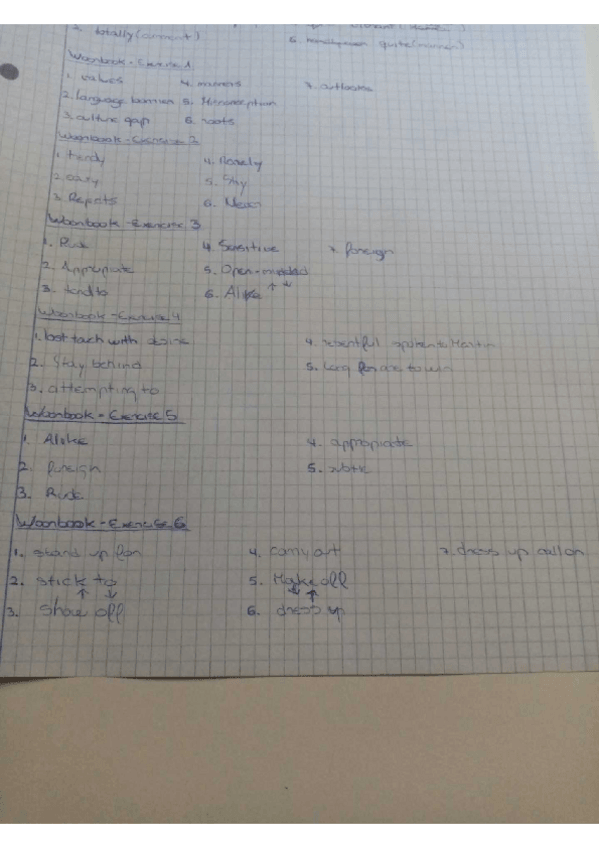 2. totally (comment)
6. quite (
Workbook - Exercise 1
1. values 4. manners 7. outlooks
2. language barrier 5.
3. culture gap 6. roots
Workbook - Exercise 2
1. 4. lonely
2. easy 5. Shy
3. 6.
Workbook - Exercise 3
1. Rude 4. Sensitive 7. foreign
2. Appropiate 5. Open-minded
3. tend to 6. Alike ↑ ↓
Workbook - Exercise 4
1. lost tach with 4.
2. Stay behind 5.
3. attempting to
Workbook - Exercise 5
1. Alike 4. appropiate
2. Foreign 5. work
3. Rude
Workbook - Exercise 6
1. stand up for 4. carry out 7. dress up
2. stick to 5. Make off
3. off 6. dress up